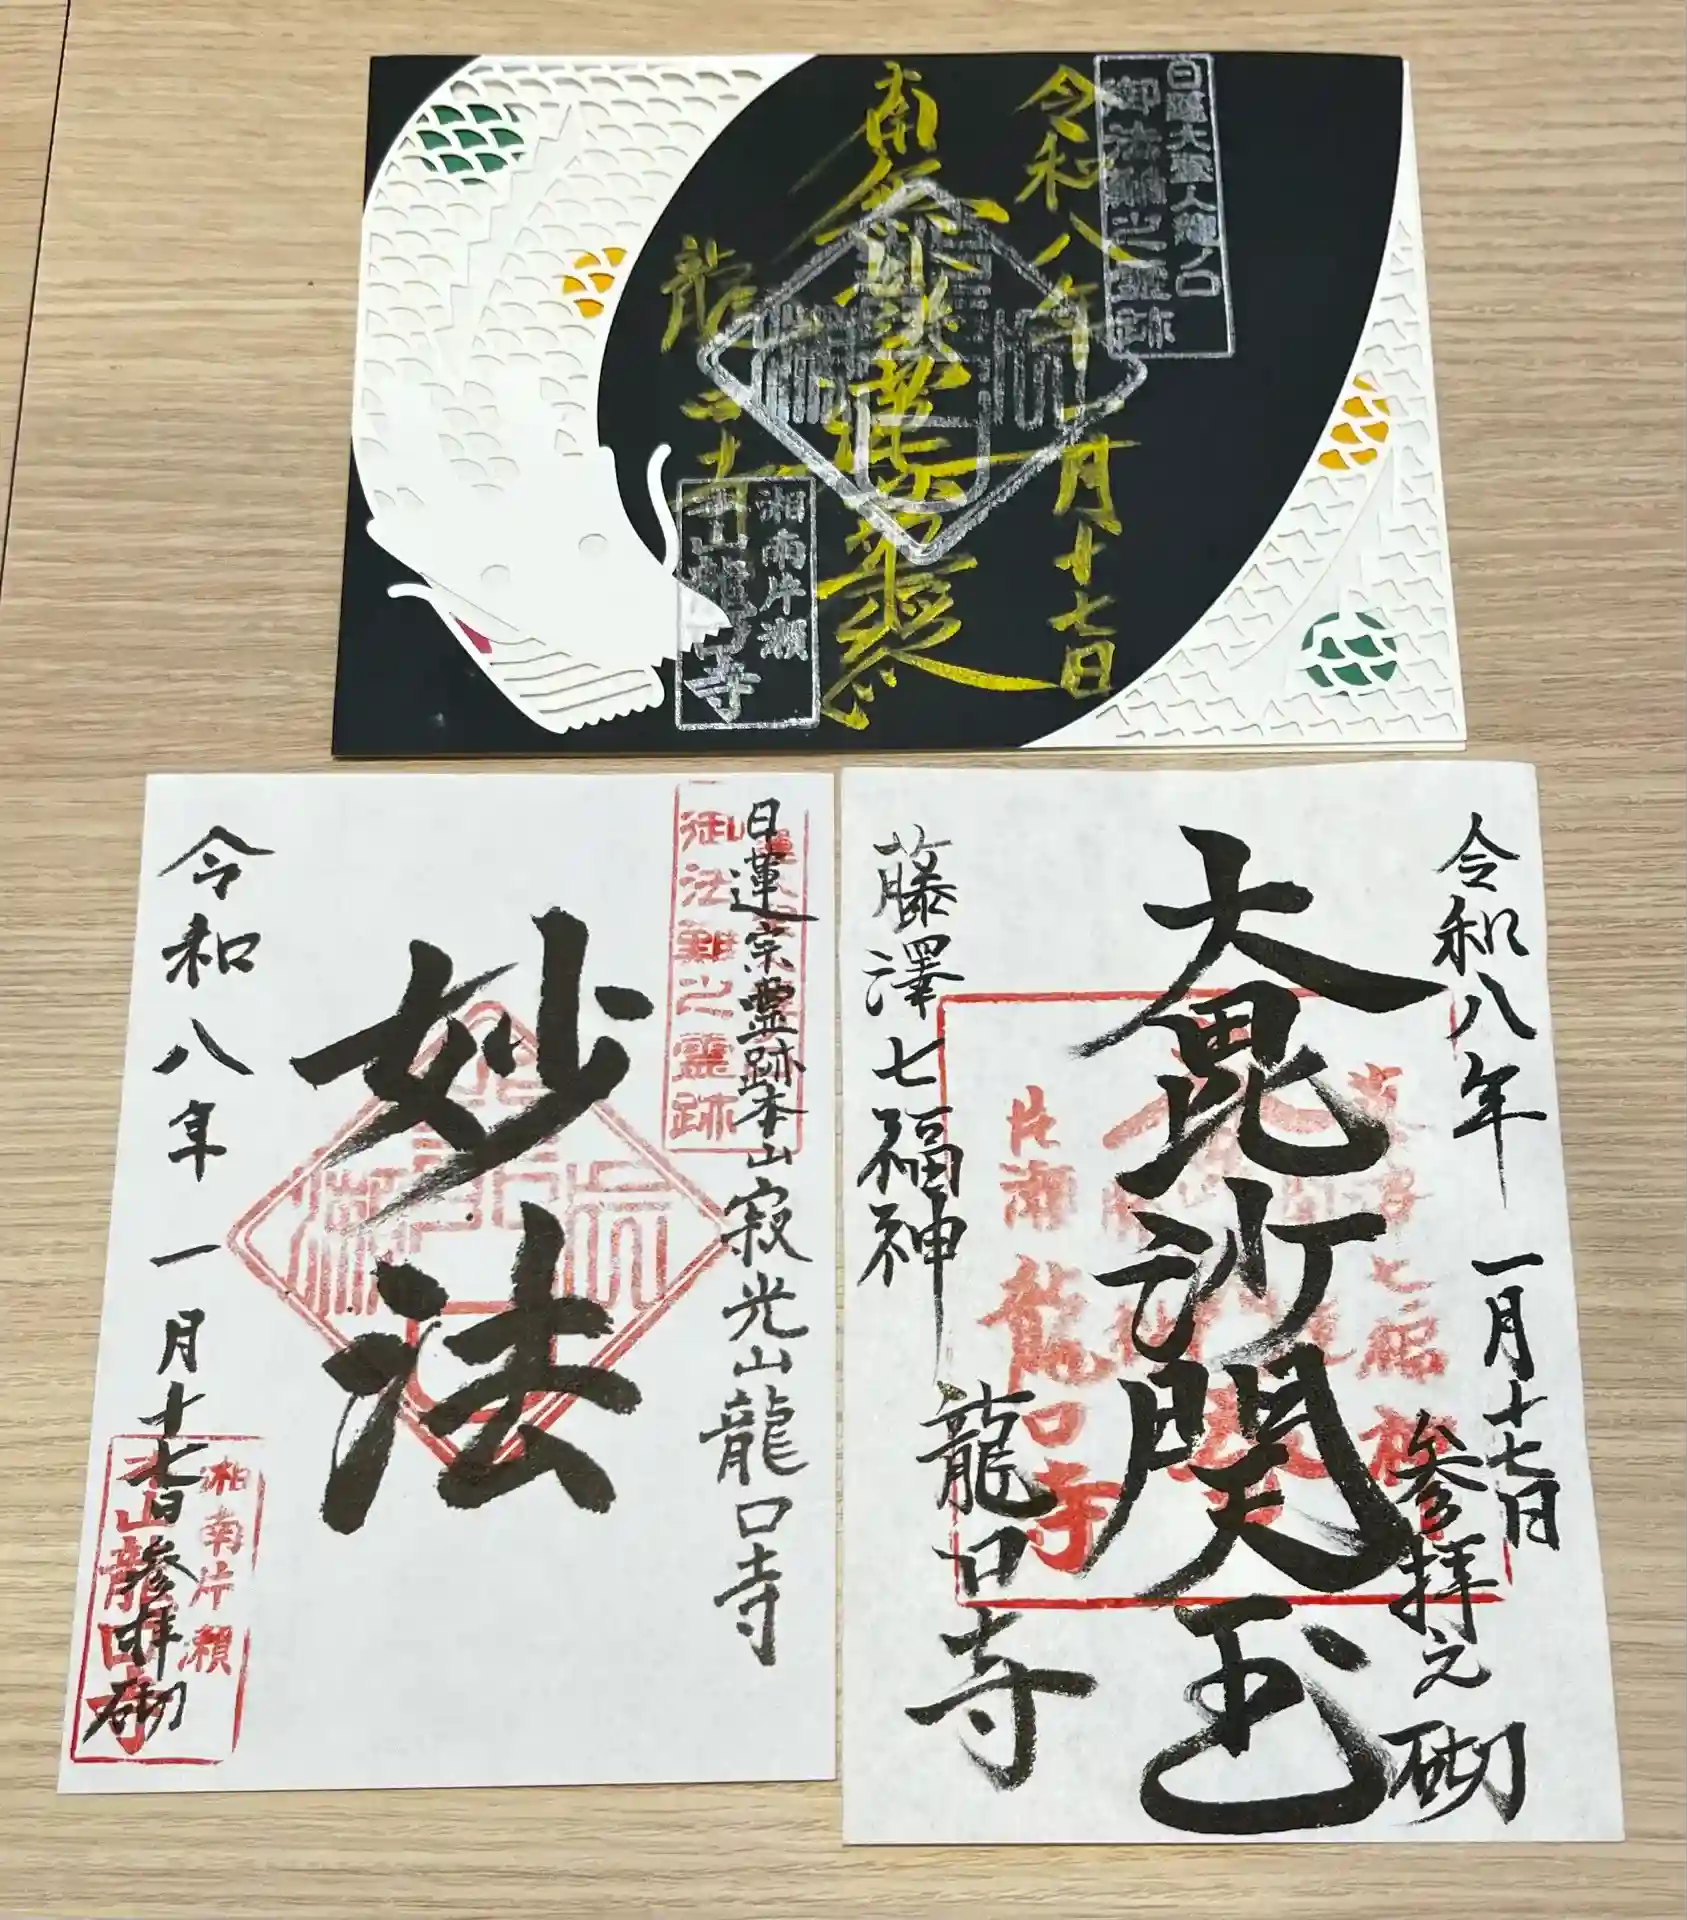 日蓮大聖人龍ノ口
御法難之霊跡
令和八年一月十七日
南無妙法蓮華経
龍口寺
湘南片瀬
本山龍口寺
御法難之霊跡
日蓮宗霊跡本山寂光山龍口寺
妙法
令和八年一月十七日参拝砌
湘南片瀬
本山龍口寺
令和八年一月十七日
参拝之砌
大毘沙門天王
片瀬龍口寺
藤澤七福神
龍口寺